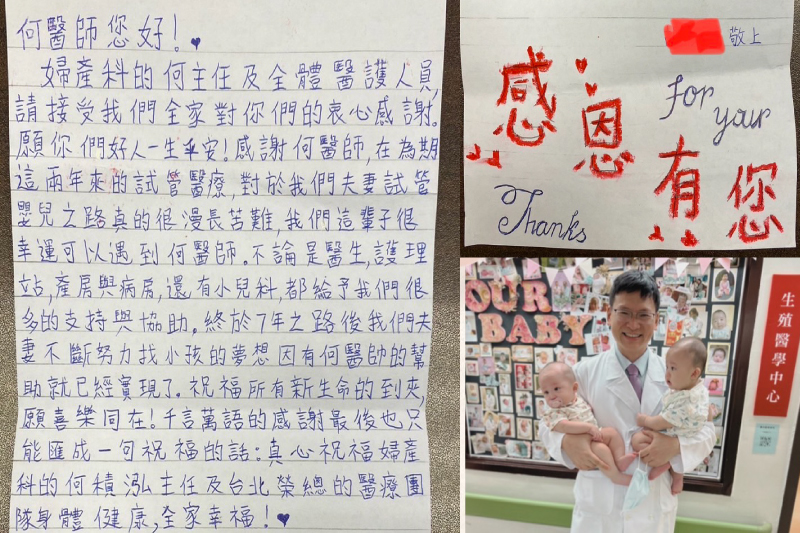 何醫師您好!♥
婦產科的何主任及全體醫護人員,
請接受我們全家對你們的衷心感謝。
願你們好人一生平安!感謝何醫師,在為期
這兩年來的試管醫療,對於我們夫妻試管
嬰兒之路真的很漫長苦難,我們這輩子很
幸運可以遇到何醫師。不論是醫生,護理
站,產房與病房,還有小兒科,都給予我們很
多的支持與協助。終於7年之路後我們夫
妻不斷努力找小孩的夢想因有何醫師的幫
助就已經實現了。祝福所有新生命的到來,
願喜樂同在!千言萬語的感謝最後也只
能匯成一句祝福的話:真心祝福婦產
科的何積泓主任及台北榮總的醫療團
隊身體健康,全家幸福!♥
敬上
感恩有您
for your
Thanks
OUR
BABY
生殖醫學中心